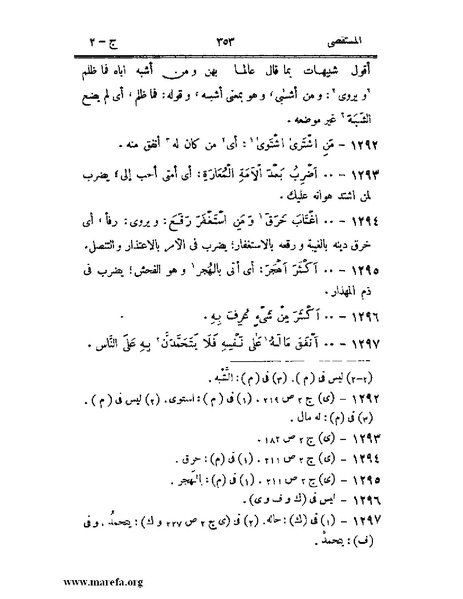 المستقصى ٣٥٣ ج - ٢
أقول شبيهات بما قال عالما بهن ومن أشبه اباه فما ظلم
ويروى: ومن أشبى، وهو بمعنى أشبه، وقوله: فما ظلم، أى لم يضع
الشبه غير موضعه.
١٢٩٢ - مَنِ اشْتَرَىٰ اشْتَوَىٰ ١: أى ٢ من كان له ٣ أنفق منه.
١٢٩٣ - ٠٠ أضْرِبُ بَعْدَ الْأمَةِ الْمُعَارَةِ: أى أمتى أحب إلى؛ يضرب
لمن اشتد هوانه عليك.
١٢٩٤ - ٠٠ اغْتَابَ خَرَقَ ١ وَمَنِ اسْتَغْفَرَ رَقَعَ: ويروى: رفأ، أى
خرق دينه بالغيبة ورقعه بالاستغفار؛ يضرب فى الأمر بالاعتذار والتنصل.
١٢٩٥ - ٠٠ أكْثَرَ أهْجَرَ: أى أتى بالهُجر ١ وهو الفحش؛ يضرب فى
ذم المهذار.
١٢٩٦ - ٠٠ أكْثَرَ مِنْ شَىْءٍ عُرِفَ بِهِ.
١٢٩٧ - ٠٠ أنْفَقَ مَالَهُ ١ عَلَى نَفْسِهِ فَلَا يَتَحَمَّدَنَّ ٢ بِهِ عَلَى النَّاسِ.
(٢-٢) ليس فى (م). (٣) فى (م): الشَّبْه.
١٢٩٢ - (ى) ج ٢ ص ٢١٩. (١) فى (م): استوى. (٢) ليس فى (م).
(٣) فى (م): له مال.
١٢٩٣ - (ى) ج ٢ ص ١٨٢.
١٢٩٤ - (ى) ج ٢ ص ٢١١. (١) فى (م): حرق.
١٢٩٥ - (ى) ج ٢ ص ٢١١. (١) فى (م): بالهجر.
١٢٩٦ - ليس فى (ك و ف وى).
١٢٩٧ - (١) فى (ك): حاله. (٢) فى (ى ج ٢ ص ٢٢٧ و ك): يتحمدُ. وفى
(ف): يتحمدْ.
www.marefa.org